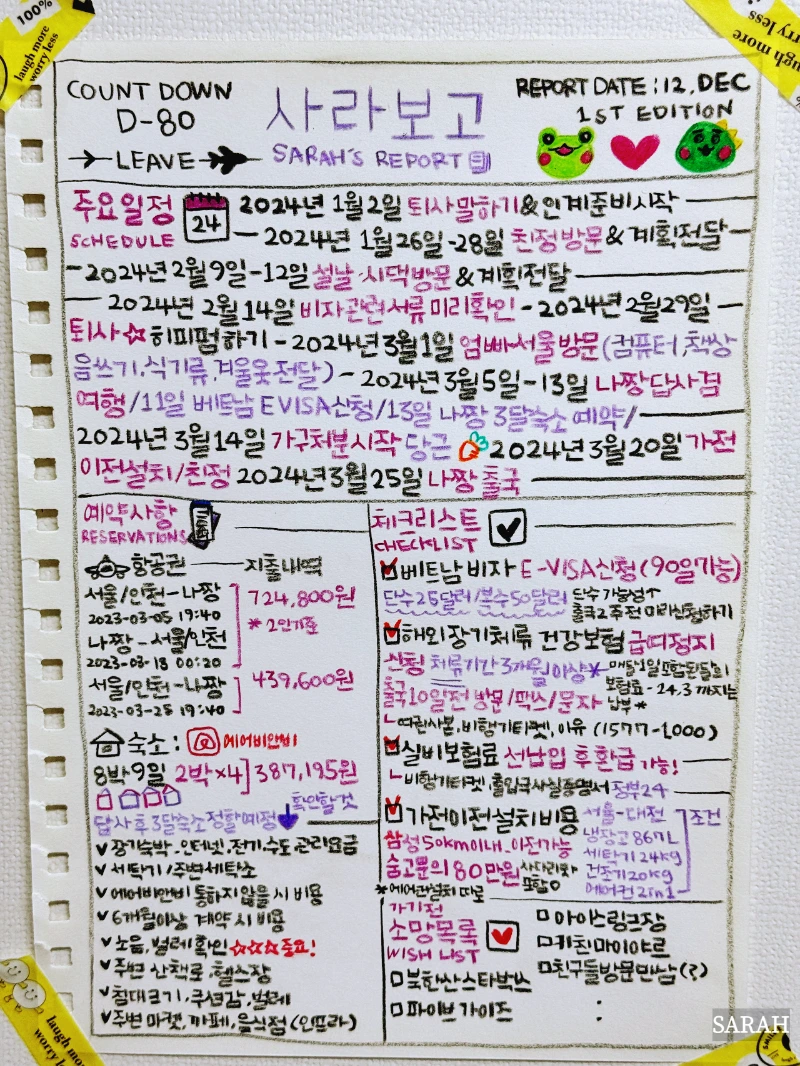 100%
laugh more
worry less
COUNT DOWN
D-80
LEAVE
사라보고
SARAH'S REPORT
REPORT DATE : 12, DEC
1ST EDITION
주요일정
SCHEDULE
24
2024년 1월 2일 퇴사말하기 & 인계준비시작
2024년 1월 26일 -28일 친정방문 & 계획전달
-2024년 2월 9일-12일 설날 시댁방문 & 계획전달
2024년 2월 14일 비자관련서류 미리확인 - 2024년 2월 29일
퇴사☆히피펌하기 - 2024년 3월 1일 엄빠서울방문(컴퓨터,책상
음쓰기,식기류,겨울옷전달) - 2024년 3월 5일-13일 나짱답사겸
여행/11일 베트남 EVISA신청/13일 나짱 3달숙소예약/
2024년 3월 14일 가구처분시작 당근 2024년 3월 20일 가전
이전설치/친정 2024년 3월 25일 나짱 출국
예약사항
RESERVATIONS
항공권 지출내역
서울/인천-나짱
2023-03-05 19:40
나짱-서울/인천
2023-03-18 00:20
724,800원
*2인기준
서울/인천-나짱
2023-03-25 19:40
439,600원
숙소: 에어비앤비
8박9일 2박×4] 387,195원
답사후 3달숙소 정할예정 확인할것
✓장기숙박-인터넷,전기,수도 관리요금
✓세탁기/주변세탁소
✓에어비앤비 통하지않을시 비용
✓6개월이상 계약시 비용
✓소음,벌레확인☆☆☆중요!
✓주변 산책로,헬스장
✓침대크기,쿠션감,벌레
✓주변 마켓,까페,음식점(인프라)
체크리스트
CHECKLIST
베트남 비자 E-VISA신청(90일가능)
단수25달러/복수50달러 단수가능성↑
출국2주전 미리신청하기
해외장기체류 건강보험 급여정지
신청 체류기간 3개월이상* 매달1일포함된달의
출국10일전 방문/팩스/문자 보험료-24.3까지는
납부*
ㄴ여권사본,비행기티켓,이유 (1577-1000)
실비보험료 선납입 후 환급 가능!
ㄴ비행기티켓,출입국사실증명서 정부24
가전이전설치비용
삼성 50km이내,이전가능
숨고문의 80만원 사다리차
포함○
*에어컨설치 따로
서울-대전
냉장고 867L
세탁기 24kg
건조기 20kg
에어컨 2in1
조건
가기전
소망목록
WISH LIST
□북한산스타벅스
□파이브가이즈
□아이스링크장
□키친마이야르
□친구들방문만남(?)
:
laugh more
worry less
SARAH